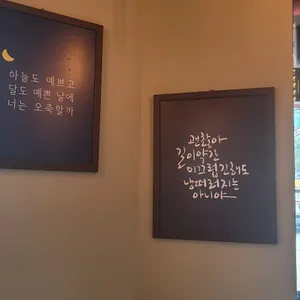 하늘도 예쁘고
달도 예쁜 날에
너는 오죽할까
괜찮아
길이 약간
미끄럽긴 해도
낭떠러지는
아니야